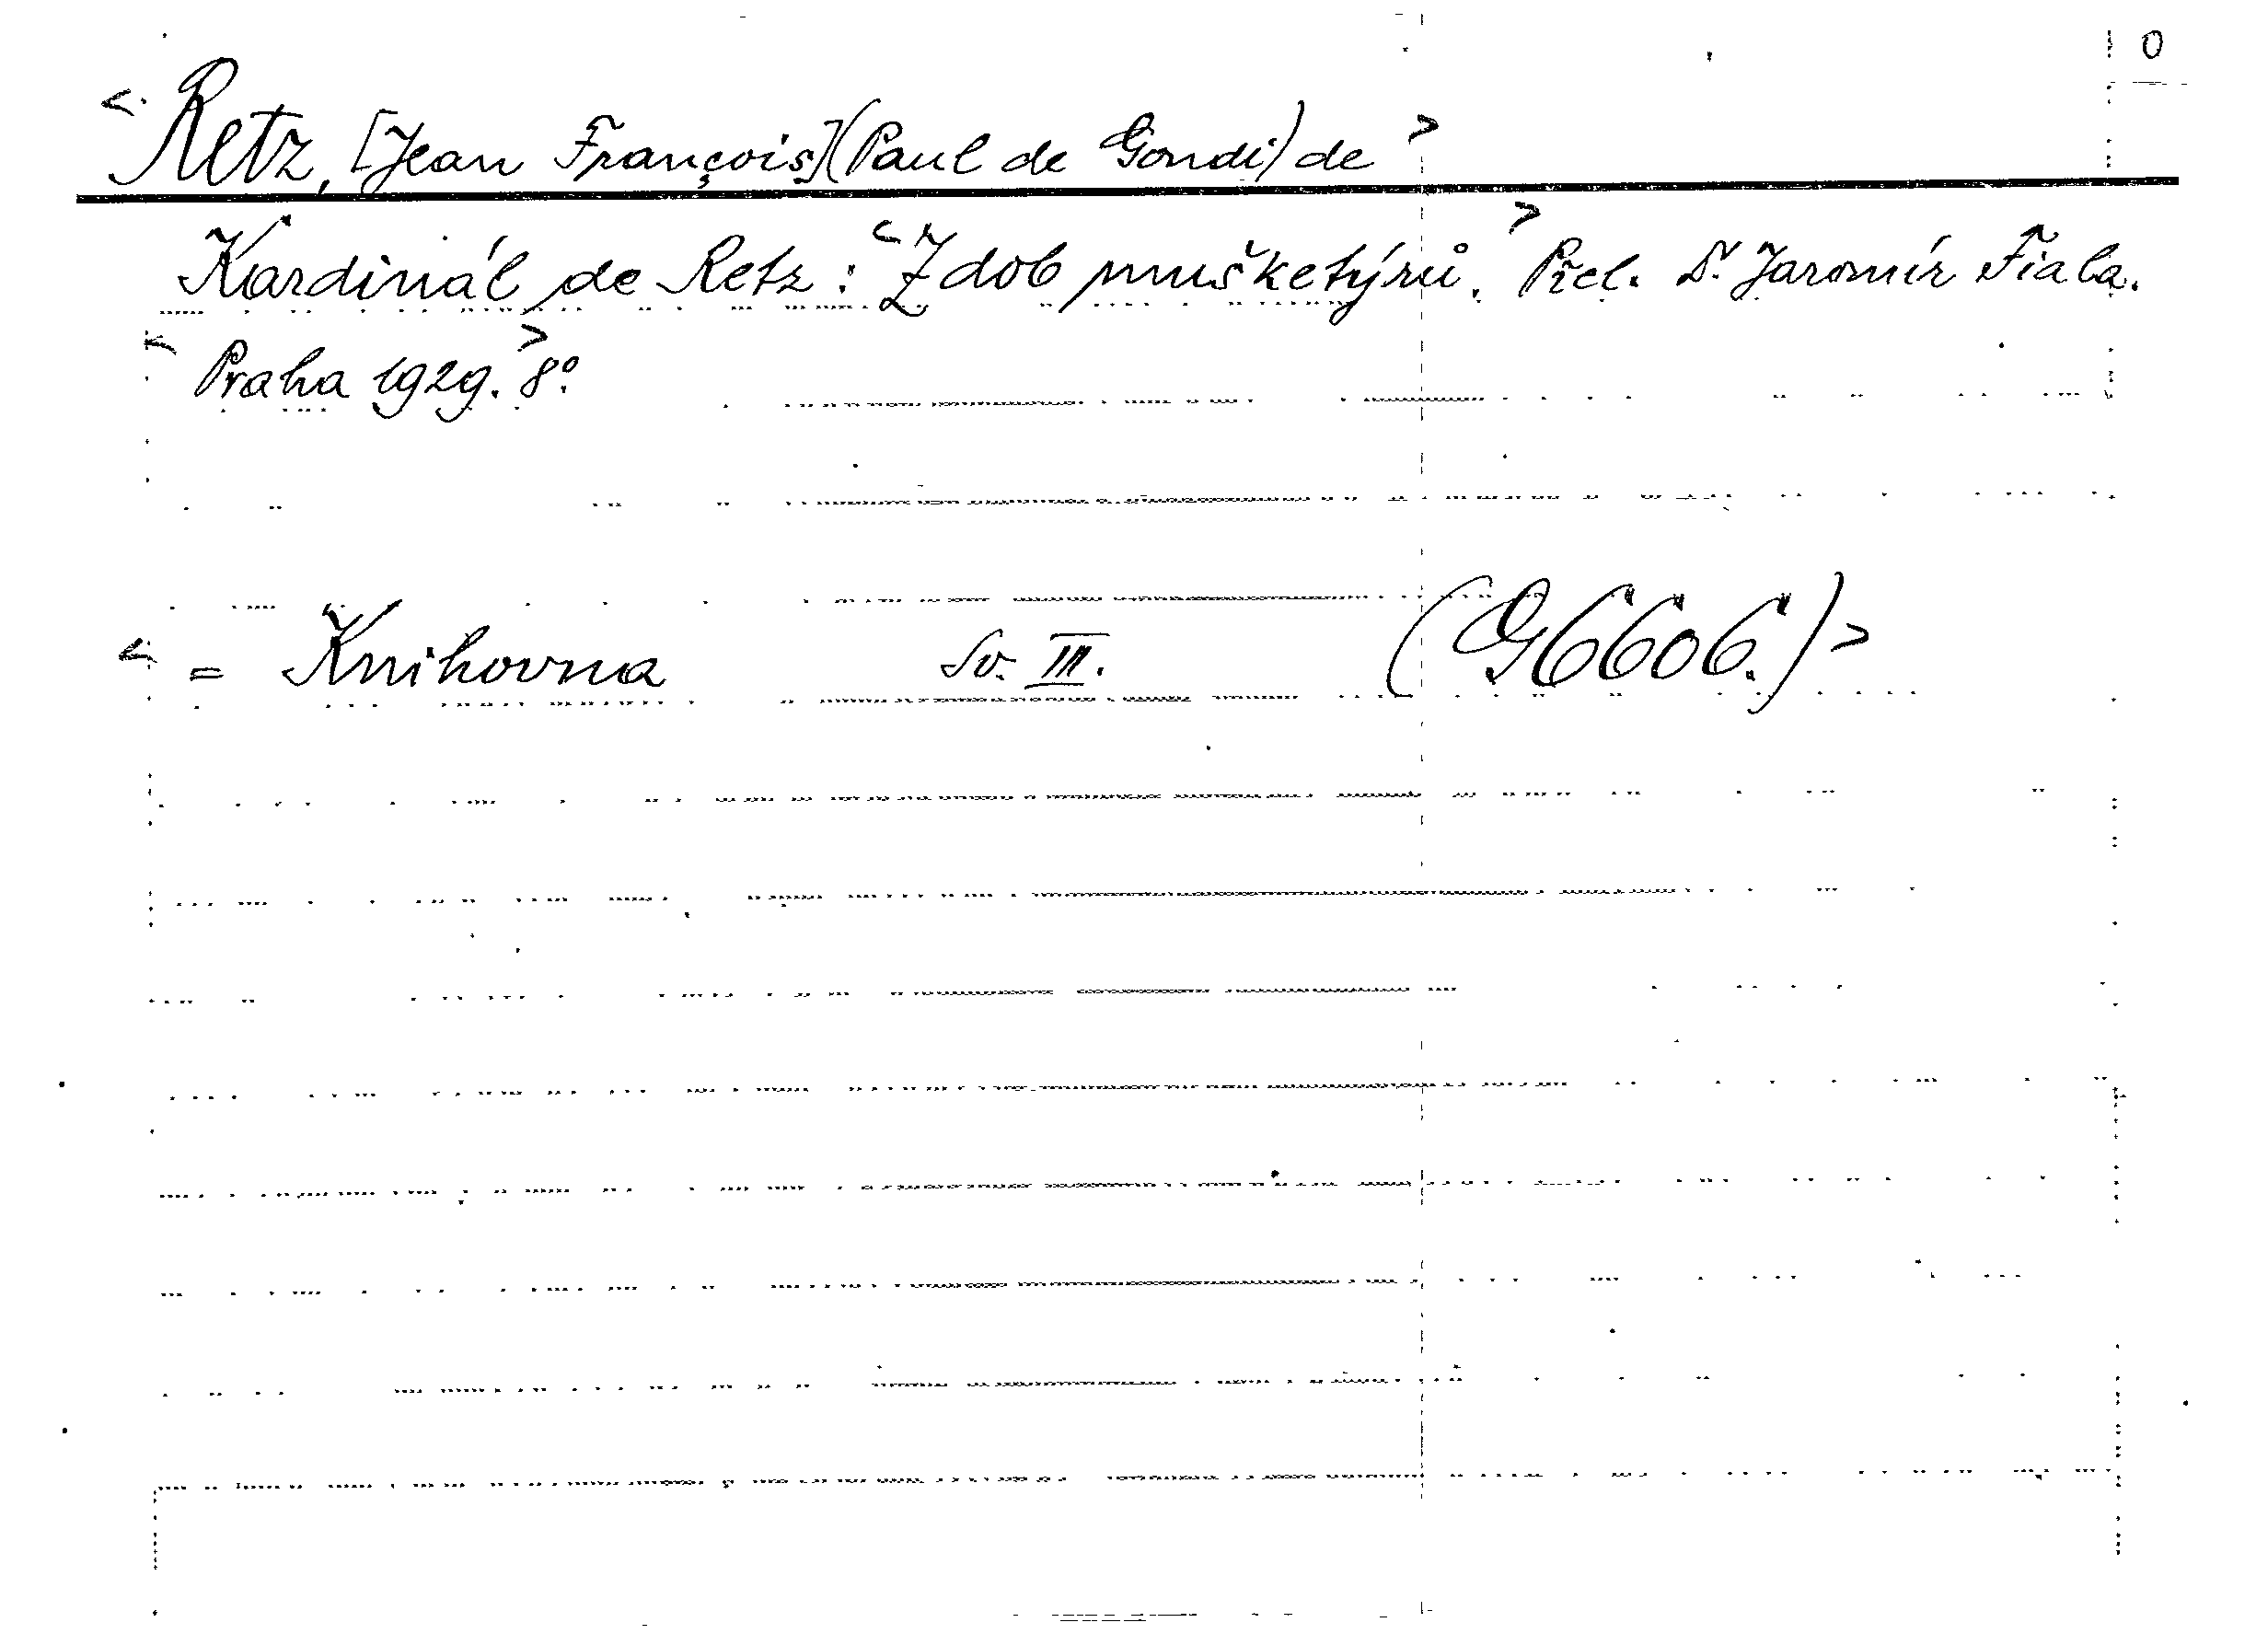 0
<Retz, [Jean François](Paul de Gondi) de>
Kardinál de Retz: <Z dob mušketýrů.> Přel. Dr. Jaromír Fiala.
<Praha 1929.> 8°.
< = Knihovna Sv. III. (G6606.)>